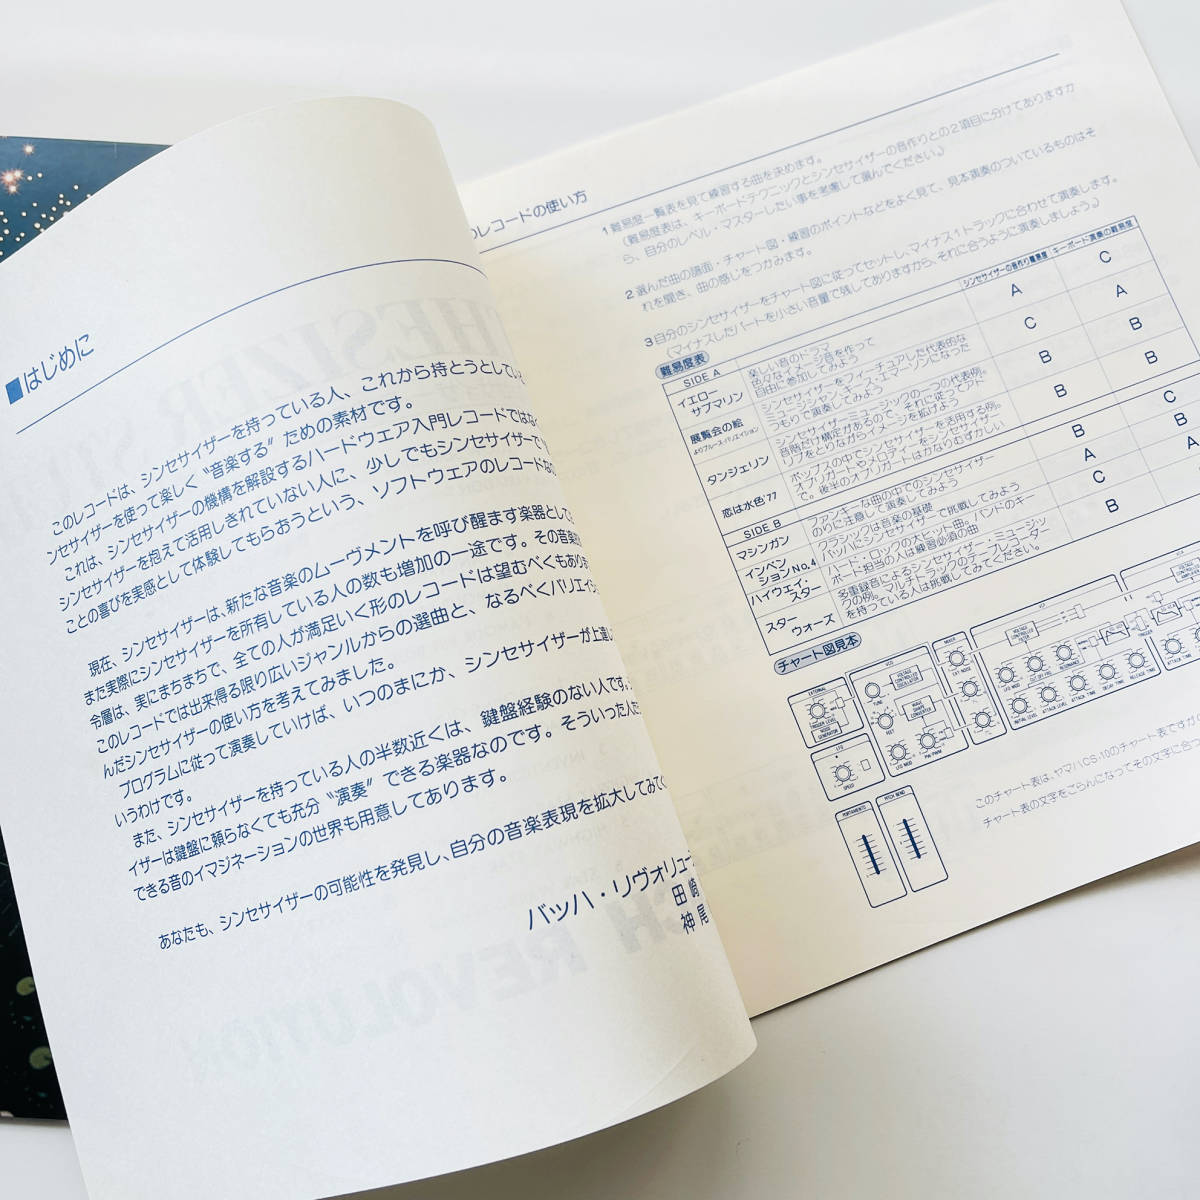 ■はじめに
このレコードは、シンセサイザーを持っている人、これから持とうとしている
ンセサイザーを使って楽しく〝音楽する〞ための素材です。
これは、シンセサイザーの機構を解設するハードウェア入門レコードではなく
シンセサイザーを抱えて活用しきれていない人に、少しでもシンセサイザーで
ことの喜びを実感として体験してもらおうという、ソフトウェアのレコードな
現在、シンセサイザーは、新たな音楽のムーヴメントを呼び醒ます楽器として
また実際にシンセサイザーを所有している人の数も増加の一途です。その音楽
令層は、実にまちまちで、全ての人が満足いく形のレコードは望むべくもあり
このレコードでは出来得る限り広いジャンルからの選曲と、なるべくバリエイシ
んだシンセサイザーの使い方を考えてみました。
プログラムに従って演奏していけば、いつのまにか、シンセサイザーが上達し
いうわけです。
また、シンセサイザーを持っている人の半数近くは、鍵盤経験のない人です。
イザーは鍵盤に頼らなくても充分〝演奏〞できる楽器なのです。そういった人た
できる音のイマジネーションの世界も用意してあります。
あなたも、シンセサイザーの可能性を発見し、自分の音楽表現を拡大してみて
バッハ・リヴォリュー
田崎
神尾
のレコードの使い方
1 難易度一覧表を見て練習する曲を決めます。
(難易度表は、キーボードテクニックとシンセサイザーの音作りとの2項目に分けてありますか
ら、自分のレベル・マスターしたい事を考慮して選んでください。)
2 選んだ曲の譜面・チャート図・練習のポイントなどをよく見て、見本演奏のついているものはそ
れを聞き、曲の感じをつかみます。
3 自分のシンセサイザーをチャート図に従ってセットし、マイナス1トラックに合わせて演奏します。
(マイナスしたパートを小さい音量で残してありますから、それに合うように演奏しましょう。)
難易度表
シンセサイザーの音作り難易度 キーボード演奏の難易度
SIDE A
イエロー
サブマリン
楽しい音のドラマ
色々なイメージ音を作って
自由に参加してみよう
A C
展覧会の絵
よりブルース・バリエイション
シンセサイザーをフィーチュアした代表的な
セッション、キース・エマーソンになった
つもりで演奏してみよう
C A
タンジェリン
シンセサイザー・ミュージックの一つの代表例。
音階だけ構定があるので、それに従ってアド
リブをとりながらイメージを拡げよう
B B
恋は水色'77
ポップスの中でシンセサイザーを活用する例。
オブリガートやメロディーをシンセサイザー
で。後半のオブリガートはかなりむずかしい
B B
SIDE B
マシンガン
ファンキーな曲の中でのシンセサイザー
のりに注意して演奏してみよう
B C
インベン
ション No.4
クラシックは音楽の基礎
バッハにシンセサイザーで挑戦してみよう
A B
ハイウェイ・
スター
ハード・ロックの大ヒット曲。バンドのキー
ボード担当の人は練習必須の曲
C A
スター
ウォーズ
多重録音によるシンセサイザー・ミュージッ
クの例。マルチトラックのテープレコーダー
を持っている人は挑戦してみてください。
B
チャート図見本
EXTERNAL
TRIGGER LEVEL
NOISE GENERATOR
LFO
SPEED
VCO
VOLTAGE CONTROLLED OSCILLATOR
TUNE
FEET
WAVE SHAPE CONVERTER
LFO MOD
PW PWM
MIXER
EXT NOISE
VCF
VOLTAGE CONTROLLED FILTER
LFO MOD
CUT OFF FRQ
RESONANCE
INITIAL LEVEL
ATTACK LEVEL
ATTACK TIME
DECAY TIME
RELEASE TIME
TRIGGER
VCA
ATTACK TIME
PORTAMENTO
PITCH BEND
このチャート表は、ヤマハCS-10のチャート表ですが
チャート表の文字をごらんになってその文字に合